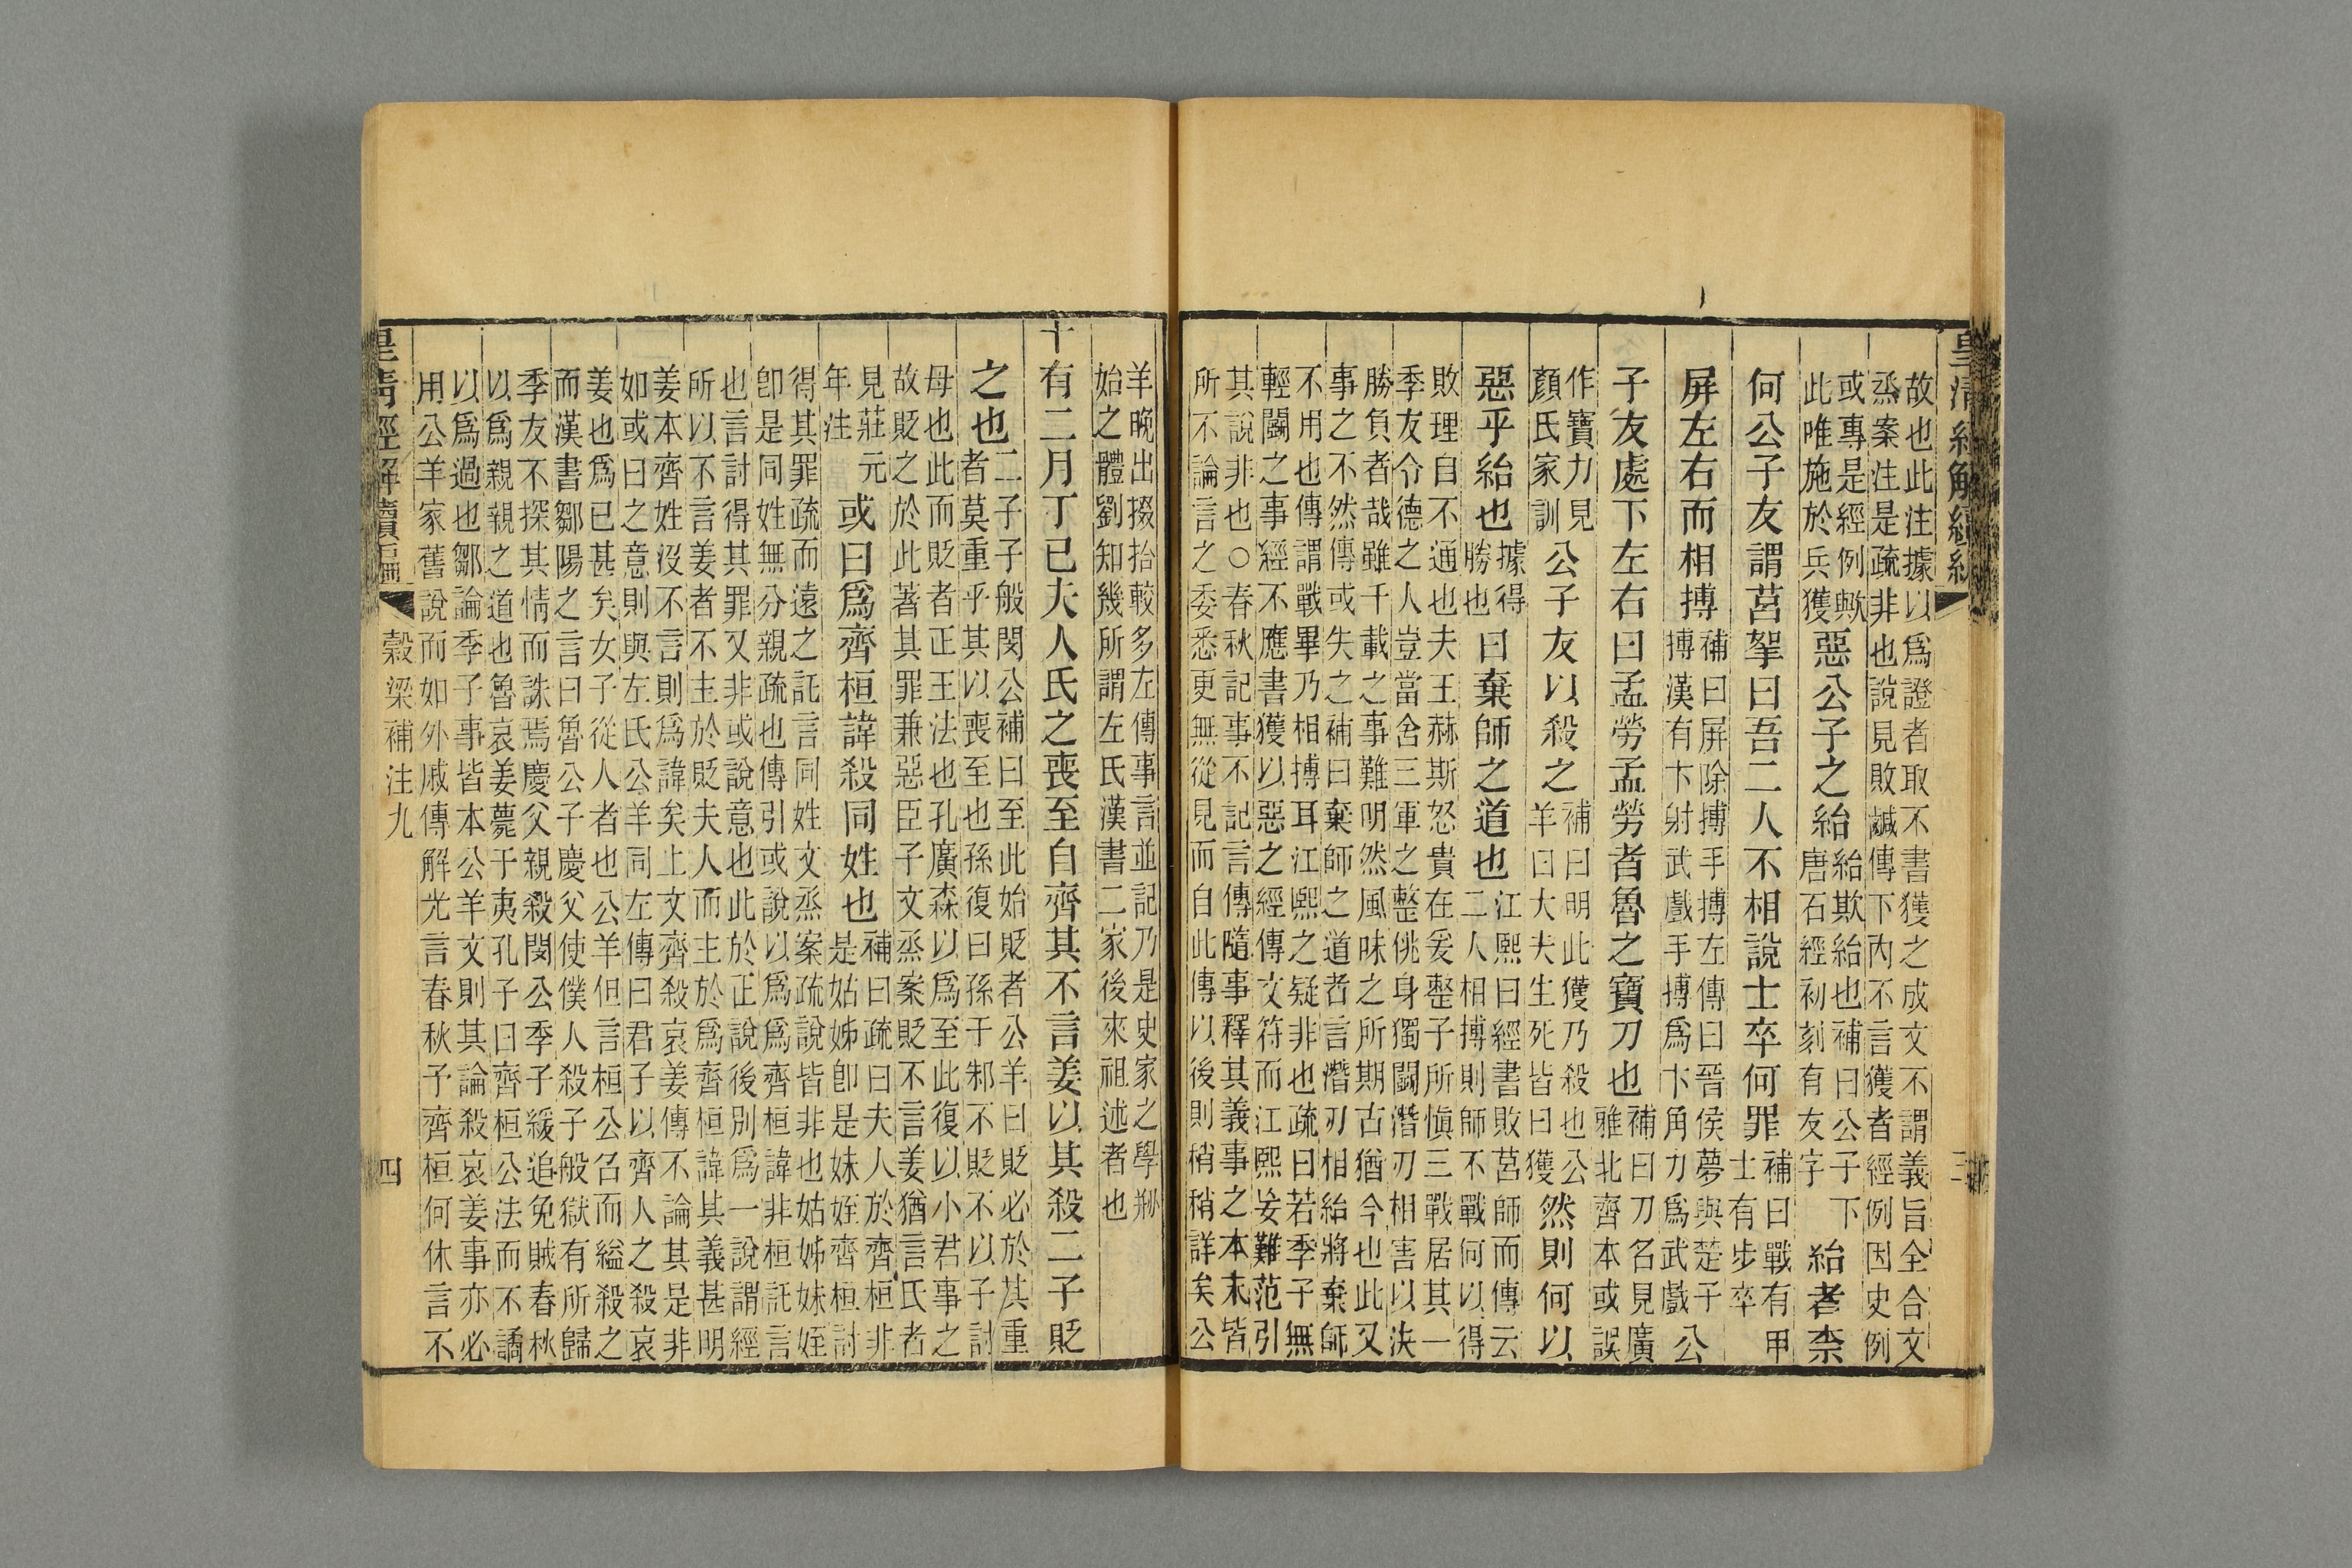 皇清經解續編
三
故也此注據以爲證者取不書獲之成文不謂義旨全合文
烝案注是疏非也說見敗鹹傳下內不言獲者經例因史例
或專是經例歟
此唯施於兵獲
惡公子之紿
紿欺紿也補曰公子下
唐石經初刻有友字
紿者柰
何公子友謂莒挐曰吾二人不相說士卒何罪
補曰戰有甲
士有步卒
屏左右而相搏
補曰屏除搏手搏左傳曰晉侯夢與楚子
搏漢有卞射武戲手搏爲卞角力爲武戲
公
子友處下左右曰孟勞孟勞者魯之寶刀也
補曰刀名見廣
雅北齊本或誤
作寶力見
顏氏家訓
公子友以殺之
補曰明此獲乃殺也公
羊曰大夫生死皆曰獲
然則何以
惡乎紿也
據得
勝也
曰棄師之道也
江熙曰經書敗莒師而傳云
二人相搏則師不戰何以得
敗理自不通也夫王赫斯怒貴在爰整子所愼三戰居其一
季友令德之人豈當舍三軍之整佻身獨鬭潛刃相害以決
勝負者哉雖千載之事難明然風味之所期古猶今也此又
事之不然傳或失之補曰棄師之道者言潛刃相紿將棄師
不用也傳謂戰畢乃相搏耳江熙之疑非也疏曰若季子無
輕鬭之事經不應書獲以惡之經傳文符而江熙妄難范引
其說非也○春秋記事不記言傳隨事釋其義事之本末皆
所不論言之委悉更無從見而自此傳以後則稍稍詳矣公
羊晚出掇拾較多左傳事言並記乃是史家之學剏
始之體劉知幾所謂左氏漢書二家後來祖述者也
十有二月丁巳夫人氏之喪至自齊其不言姜以其殺二子貶
之也
二子子般閔公補曰至此始貶者公羊曰貶必於其重
者莫重乎其以喪至也孫復曰孫于邾不貶不以子討
母也此而貶者正王法也孔廣森以爲至此復以小君事之
故貶之於此著其罪兼惡臣子文烝案貶不言姜猶言氏者
見莊元
年注
或曰爲齊桓諱殺同姓也
補曰疏曰夫人於齊桓非
是姑姊卽是妹姪齊桓討
得其罪疏而遠之託言同姓文烝案疏說皆非也姑姊妹姪
卽是同姓無分親疏也傳引或說以爲爲齊桓諱非桓託言
也言討得其罪又非或說意也此於正說後別爲一說謂經
所以不言姜者不主於貶夫人而主於爲齊桓諱其義甚明
姜本齊姓沒不言則爲諱矣上文齊殺哀姜傳不論其是非
如或曰之意則與左氏公羊同左傳曰君子以齊人之殺哀
姜也爲已甚矣女子從人者也公羊但言桓公召而縊殺之
而漢書鄒陽之言曰魯公子慶父使僕人殺子般獄有所歸
季友不探其情而誅焉慶父親殺閔公季子緩追免賊春秋
以爲親親之道也魯哀姜薨于夷孔子曰齊桓公法而不譎
以爲過也鄒論季子事皆本公羊文則其論殺哀姜事亦必
用公羊家舊說而如外戚傳解光言春秋予齊桓何休言不
皇清經解續編
穀梁補注九
四